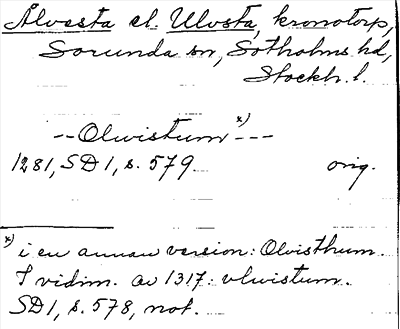 Alvesta el. Ulvsta, kronotorp,
Sorunda sn, Sotholms hd,
Stockh. l.
-- Olwistum x) ---
1281, SD 1, s. 579. orig.
x) i en annan version: Olvisthum.
I vidim. av 1317: vlwistum.
SD 1, s. 578, not.